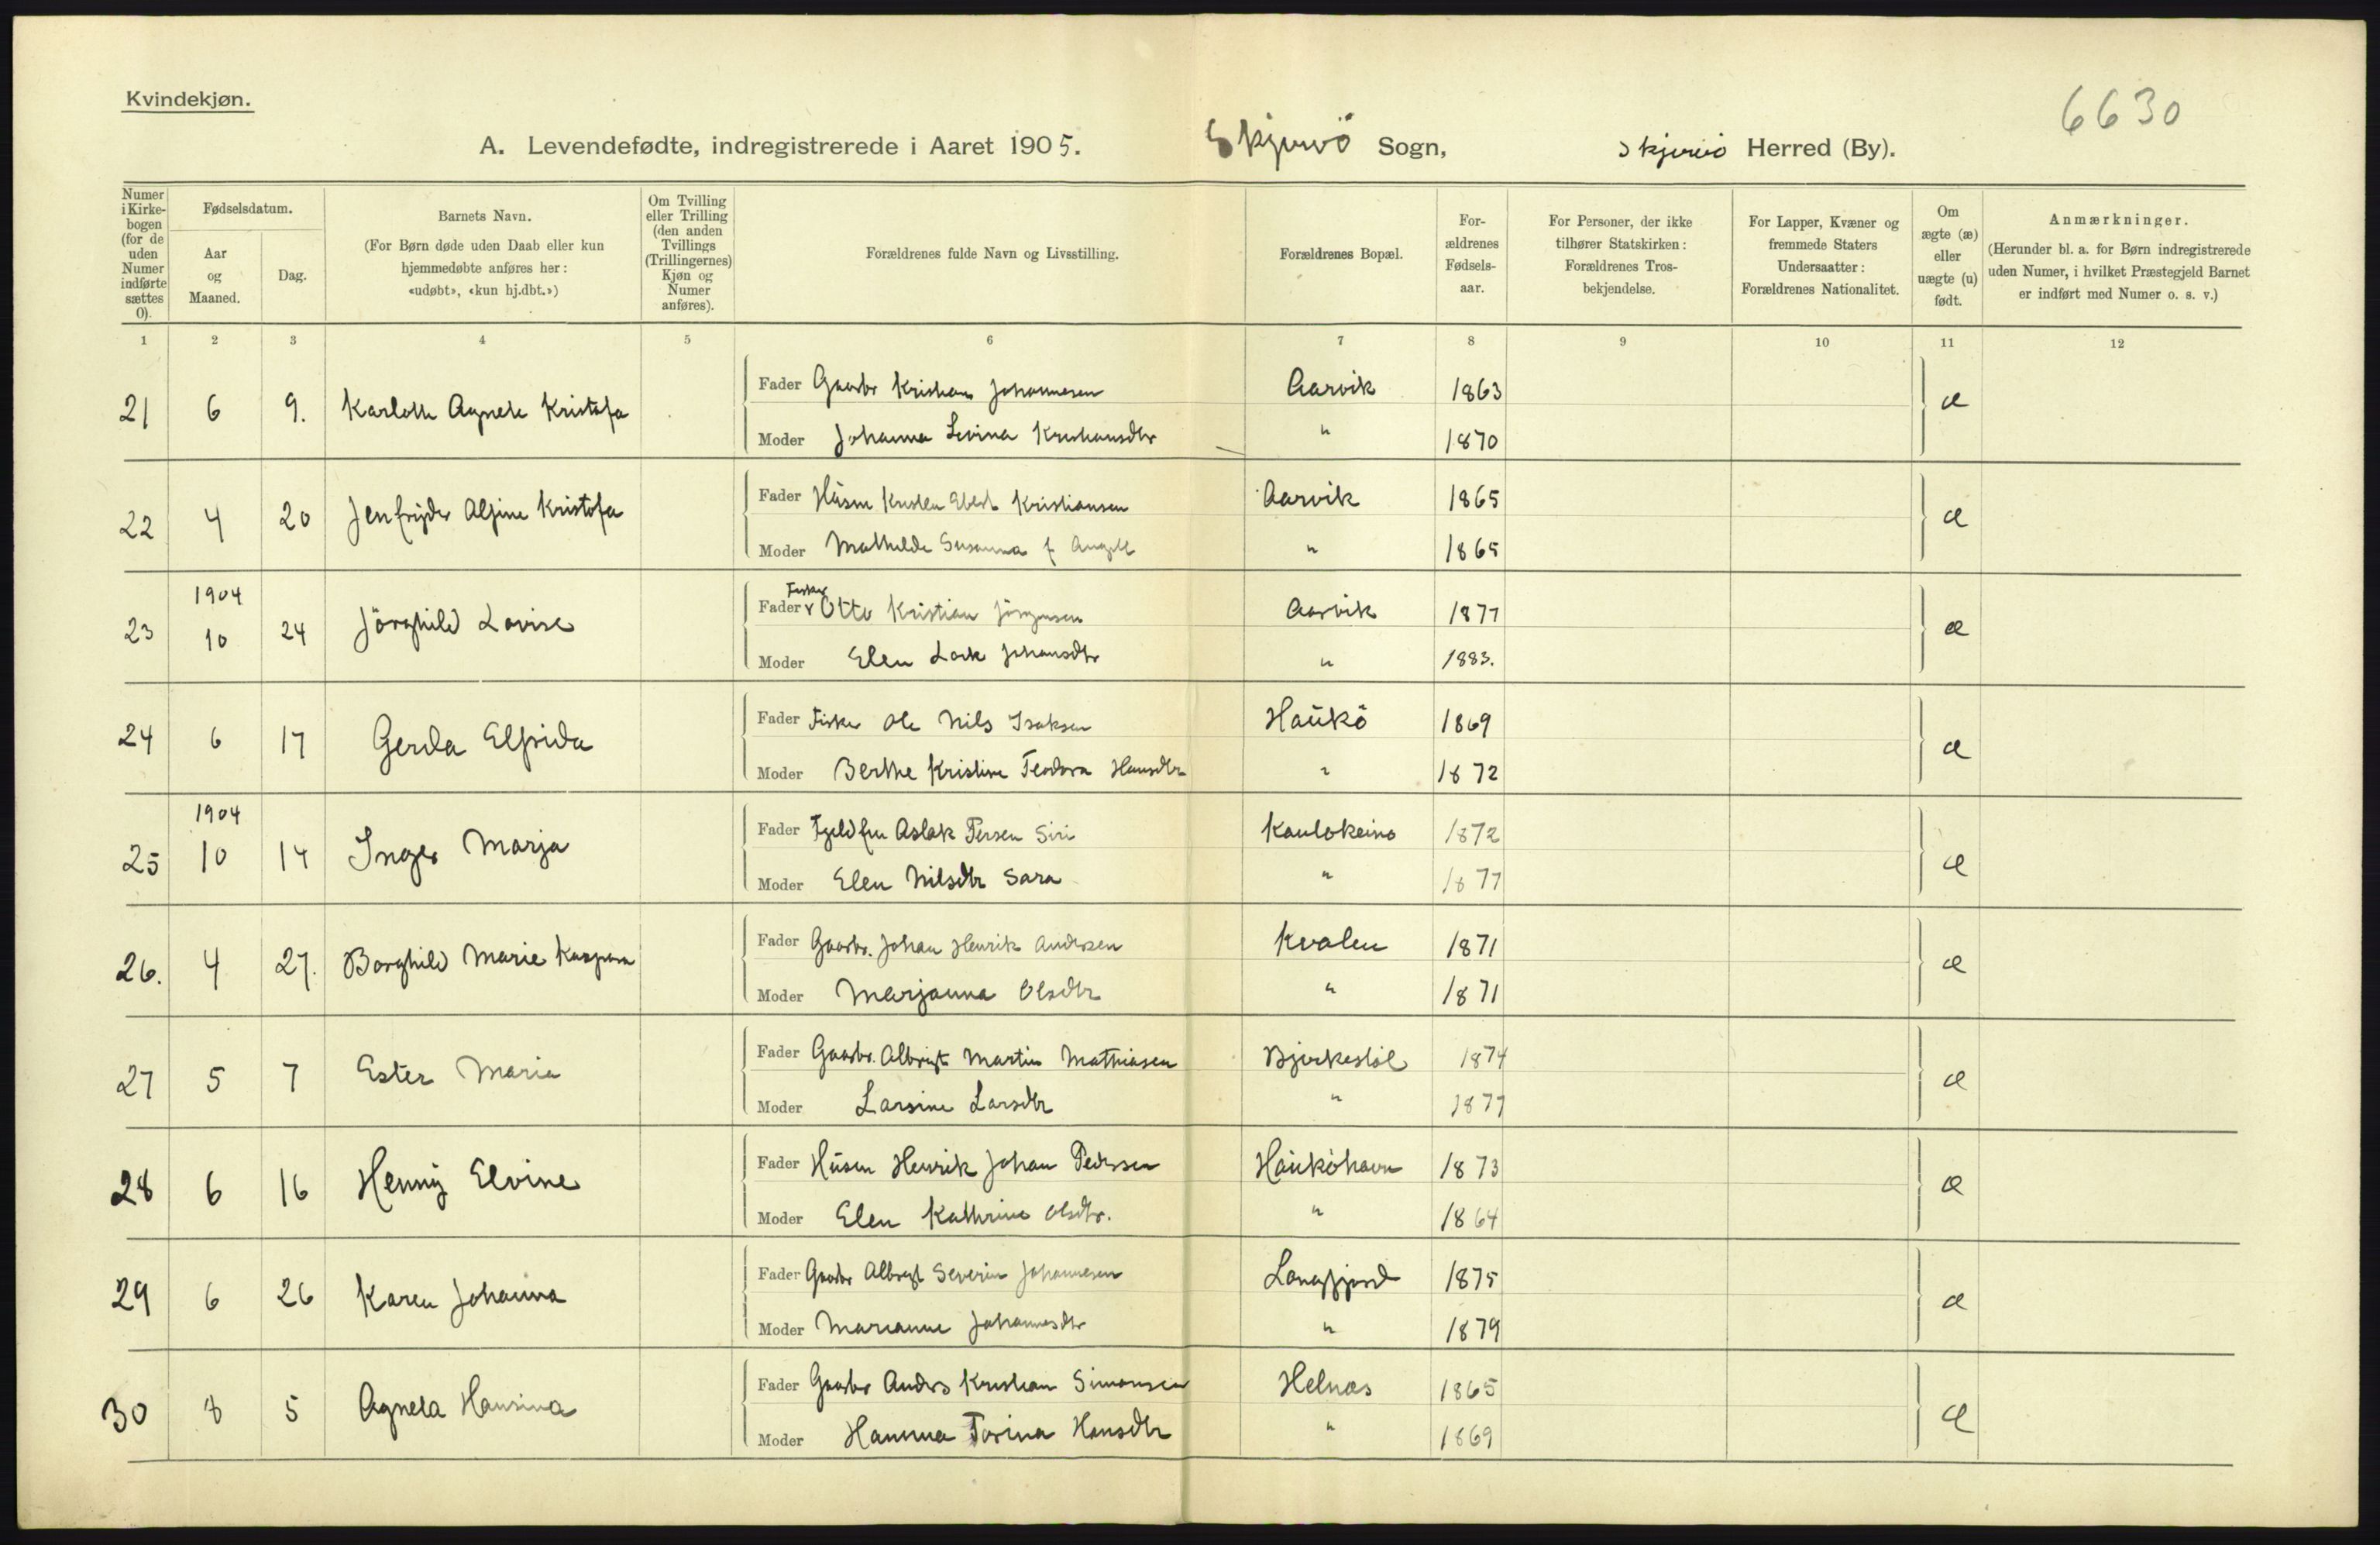 Kvindekjøn.
6630
A. Levendefødte, indregistrerede i Aaret 1905. Skjervö Sogn, Skjervö Herred (By).
Numer i Kirkebogen (for de uden Numer indførte sættes 0).
Fødselsdatum.
Aar og Maaned.
Dag.
Barnets Navn.
(For Børn døde uden Daab eller kun hjemmedøbte anføres her: «udøbt», «kun hj.dbt.»)
Om Tvilling eller Trilling (den anden Tvillings (Trillingernes) Kjøn og Numer anføres).
Forældrenes fulde Navn og Livsstilling.
Forældrenes Bopæl.
Forældrenes Fødselsaar.
For Personer, der ikke tilhører Statskirken: Forældrenes Trosbekjendelse.
For Lapper, Kvæner og fremmede Staters Undersaatter: Forældrenes Nationalitet.
Om ægte (æ) eller uægte (u) født.
Anmærkninger.
(Herunder bl. a. for Børn indregistrerede uden Numer, i hvilket Præstegjeld Barnet er indført med Numer o. s. v.)
1 2 3 4 5 6 7 8 9 10 11 12
21 6 9. Karlotte Agnete Kristofa Fader Gaardbr Kristian Johannesen Aarvik 1863 æ
Moder Johanna Levina Kristiansdtr " 1870
22 4 20 Jenfryder Alfine Kristofa Fader Husm Kristen Ebert Kristiansen Aarvik 1865 æ
Moder Mathilde Susanna f Angell " 1865
1904
23 10 24 Jörghild Lovise Fader Fisker Otto Kristian Jörgensen Aarvik 1877 æ
Moder Elen Johansdtr " 1883.
24 6 17 Gerda Elfrida Fader Fisker Ole Nils Isaksen Haukö 1869 æ
Moder Berthe Kristine Teodora Hansdtr " 1872
1904
25 10 14 Inger Marja Fader Fjeldfin Aslak Persen Siri Kautokeino 1872 æ
Moder Elen Nilsdtr Sara " 1877
26. 4 27. Borghild Marie Kaspara Fader Gaardbr. Johan Henrik Andersen Kvalen 1871 æ
Moder Marjanna Olsdtr " 1871
27 5 7 Ester Maria Fader Gaardbr. Albrigt Martin Mathiasen Bjerkestöl 1874 æ
Moder Larsine Larsdtr " 1877
28 6 16 Henny Elvine Fader Husm Henrik Johan Pedersen Hauköhavn 1873 æ
Moder Elen Kathrine Olsdtr. " 1864
29 6 26 Karen Johanna Fader Gaardbr Albrigt Severin Johannesen Langfjord 1875 æ
Moder Marianne Johannesdtr " 1879
30 8 5 Agneta Hansina Fader Gaardbr Anders Kristian Simonsen Helnæs 1865 æ
Moder Hanna Torina Hansdtr " 1869